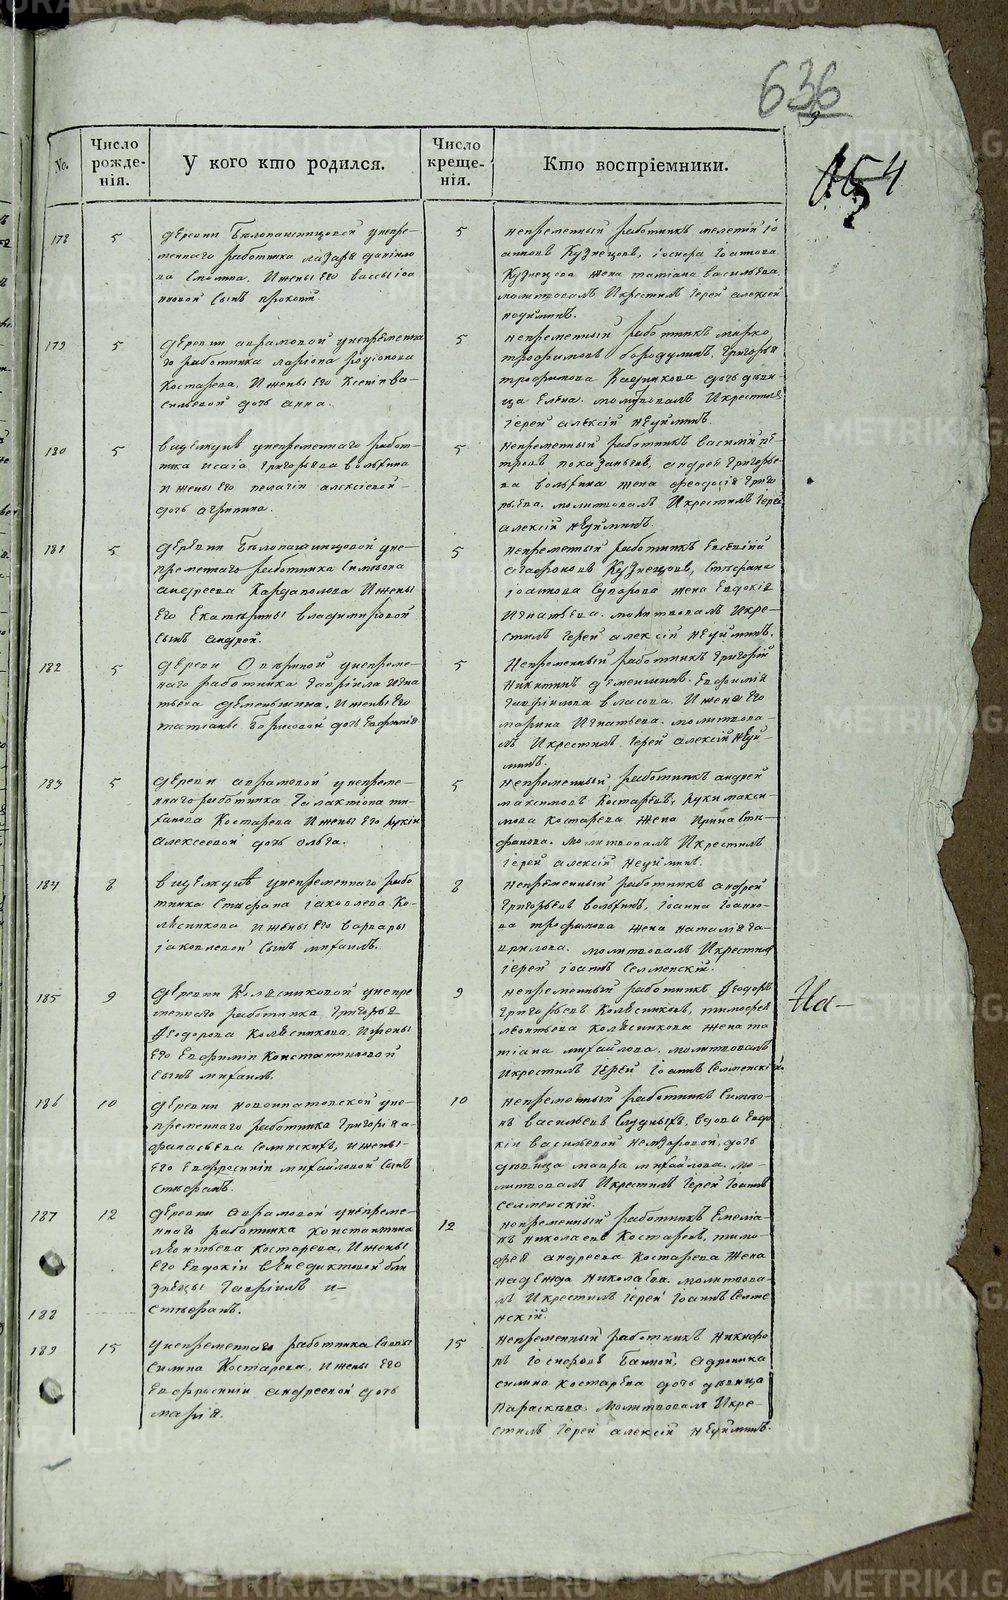 636
154
No.
Число рожде-нія.
У кого кто родился.
Число креще-нія.
Кто воспріемники.
178
5
деревни Белопашинцовой унепре-
меннаго работника лазаря данило-
ва Смолина, И жены его вассы іоа
нновой сынъ прокопій
5
непременный работникъ мелетий іо
анновъ Кузнецовъ, іосифа іоаннова
Кузнецова жена татіана васильева
молитвовалъ И крестилъ іерей алексей
неуйминъ.
179
5
деревни аврамовой унепременна
го работника ларіона родіонова
Костарева, И жены его Ксеніи ва-
сильевой дочь анна.
5
непременный работникъ марко
трофимовъ бородулинъ, григорья
трофимова Кадникова дочь деви-
ца Елена. молитвовалъ И крестилъ
іерей алексій неуйминъ.
180
5
унепременнаго работ-
ника исаіа григорьева вольхина
и жены его пелагіи алексіевой
дочь агрипина.
5
непременный работникъ василий пе-
тровъ андрей григорье-
ва вольхина жена феодосія григо
рьева, молитвовалъ И крестилъ іерей
алексій неуйминъ.
181
5
деревни Белопашинцовой уне-
пременнаго работника Симеона
андреева Каргаполова И жены
его Екатерины владимировой
сынъ андрей.
5
непременный работникъ Евсевій
агафоновъ Кузнецовъ, Стефана
іоаннова жена Евдокія
Игнатьева. молитвовалъ И кре-
стилъ іерей алексій неуйминъ.
182
5
деревни унепреме-
ннаго работника гавріила Игна
тьева деменьшина, И жены его
татіаны борисовой дочь Евфимія
5
Непременный работникъ григорій
Никитинъ деменшинъ, Евфимія
гавріилова власова. И жена его
марина Игнатьева. молитвова-
лъ И крестилъ іерей алексій неуй-
минъ.
183
5
деревни аврамовой унепреме-
ннаго работника галактіона ти-
ханова Костарева И жены его
алексеевой дочь ольга.
5
непременный работникъ андрей
максимовъ Костаревъ, луки макси-
мова Костарева жена Ирина Сте-
фанова. молитвовалъ И крестилъ
іерей алексій неуйминъ.
184
8
унепременнаго рабо
тника Стефана іаковлева Ко-
лесникова И жены его варвары
іаковлевой сынъ михаилъ.
8
непременный работникъ андрей
григорьевъ вольхинъ, іоанна іоанно-
ва трофимова жена наталія га-
врилова. молитвовалъ И крестилъ
іерей іоаннъ Селменскій.
185
9
деревни Колесниковой унепре
меннаго работника григорья
Феодорова Колесникова, И жены
его Евфиміи Константиновой
сынъ михаилъ.
9
непременный работникъ Феодоръ
григорьевъ Колесниковъ, тимофея
леонтьева Колесникова жена та
тіана михайлова. молитвовалъ
И крестилъ іерей іоаннъ Селменскій.
На-
186
10
деревни новоипатовской уне-
пременнаго работника григорія а-
фанасьева Семинскихъ, и жены
его Евфросиніи михайловой сынъ
стефанъ.
10
непременный работникъ Симео-
нъ васильевъ вдовы Евдо
кіи васильевой дочь
девица мавра михайлова. мо-
литвовалъ И крестилъ іерей іоаннъ
селменскій.
187
12
деревни аврамовой унепреме-
ннаго работника константина
леонтьева костарева, И жены
его Евдокіи венедиктовой бли
знецы гавріилъ и
188
стефанъ.
12
непременный работникъ Емелья-
нъ николаевъ Костаревъ, тимо-
фея андреева Костарева жена
надежда николаева. молитвова-
лъ И крестилъ іерей іоаннъ Селме
нскій.
189
15
унепременнаго работника Саввы
силина Костарева, И жены его
Евфросиніи андреевой дочь
марія.
15
непременный работникъ Никифоро
въ андроника
силина костарева дочь девица
Параскева. молитвовалъ И кре-
стилъ іерей алексій неуйминъ.
METRIKI.GASO-URAL.RU